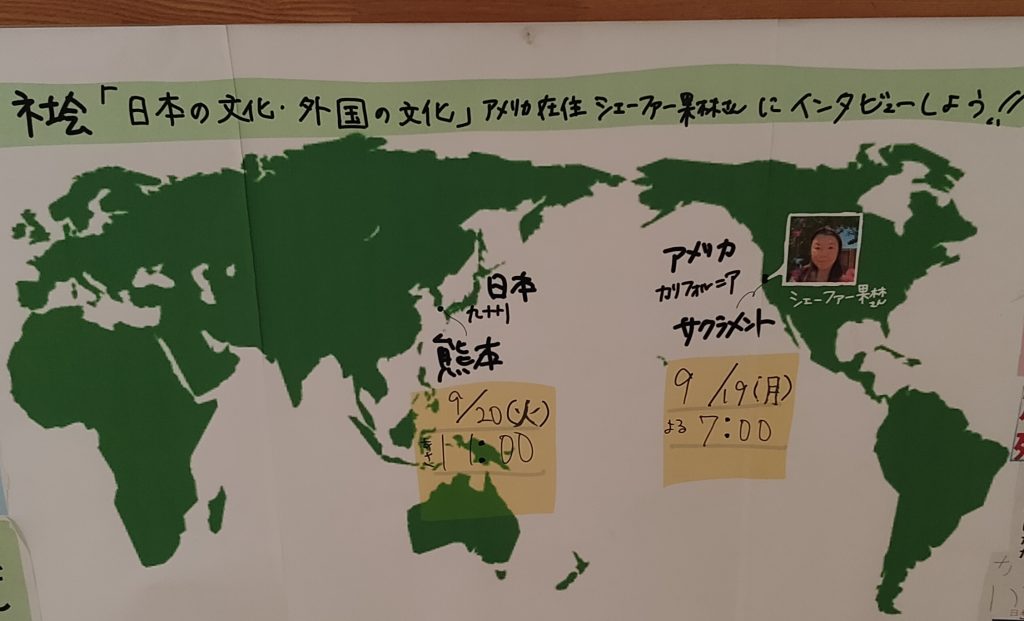 社会「日本の文化・外国の文化」アメリカ在住 シェーファー果林さん にインタビューしよう!!
日本
九州
熊本
9/20(火)
11:00
アメリカ
カリフォルニア
サクラメント
シェーファー果林さん
9/19(月)
よる 7:00